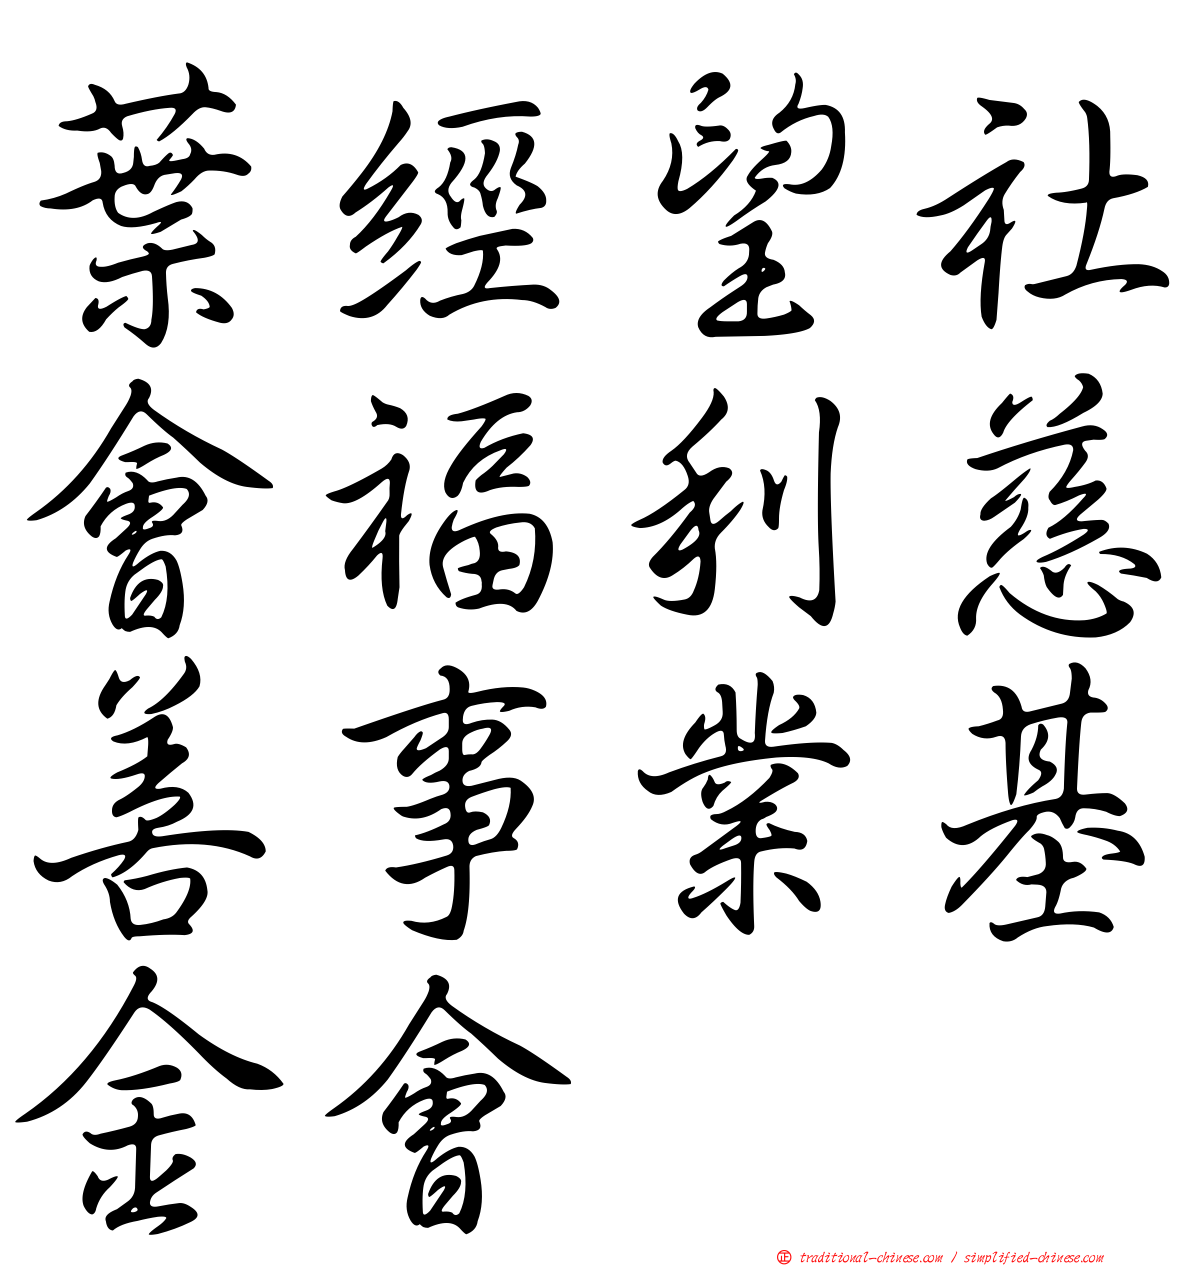 葉經望社
會福利慈
善事業基
金會
正 traditional-chinese.com / simplified-chinese.com